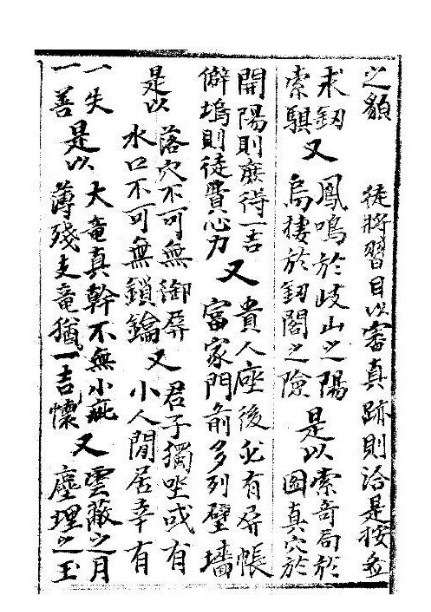 之貌 徒將習目以審真跡則洽是按
求釼
索騏
又
鳳鳴於岐山之陽
烏棲於釼閣之險
是以
索奇局於
圖真穴於
開陽則庶得一吉
僻塢則徒費心力
又
貴人座後必有屏帳
富家門前多列壁墻
是以
落穴不可無御屏
水口不可無鎖鑰
又
君子獨坐或有
小人閒居幸有
一失
一善
是以
大竜真幹不無小疵
薄殘支竜猶懷一吉
又
雲蔽之月
塵埋之玉